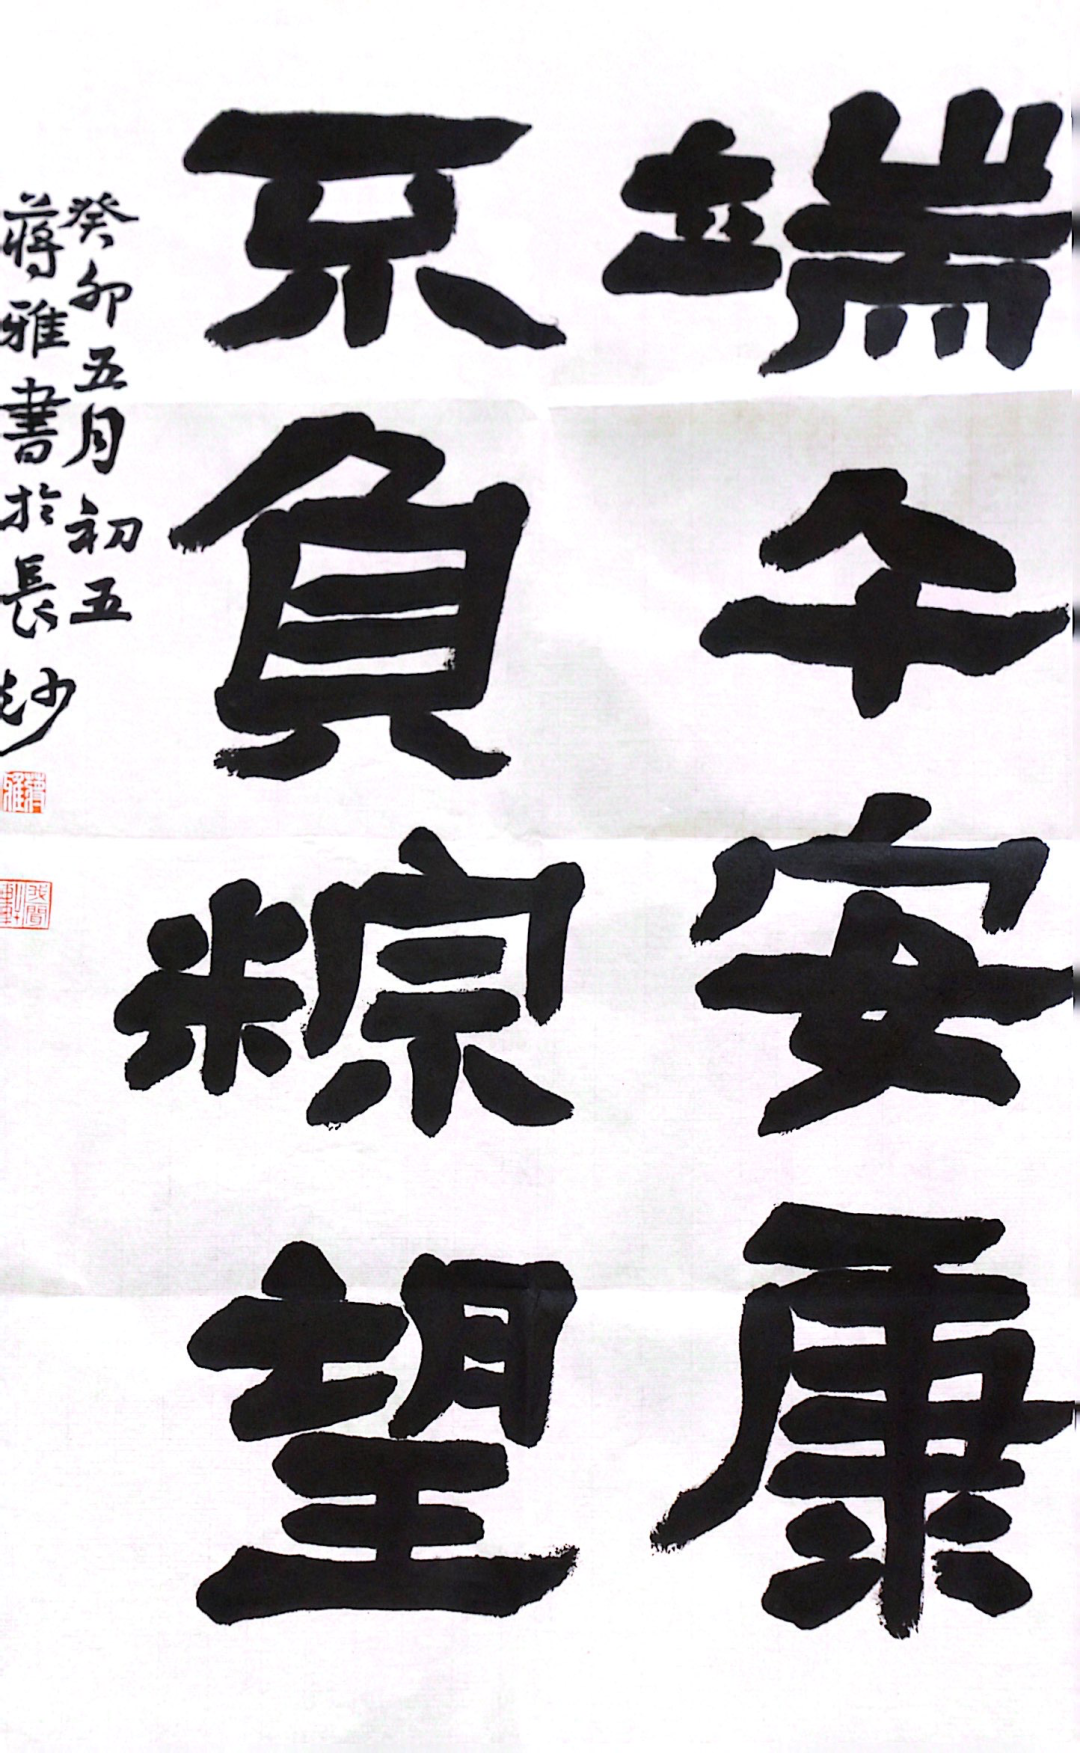 端午安康
不负粽望
癸卯五月初五
蔣雅書於長沙
蔣雅